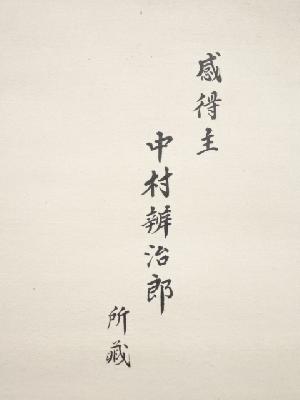 感得主
中村辨治郎
所蔵